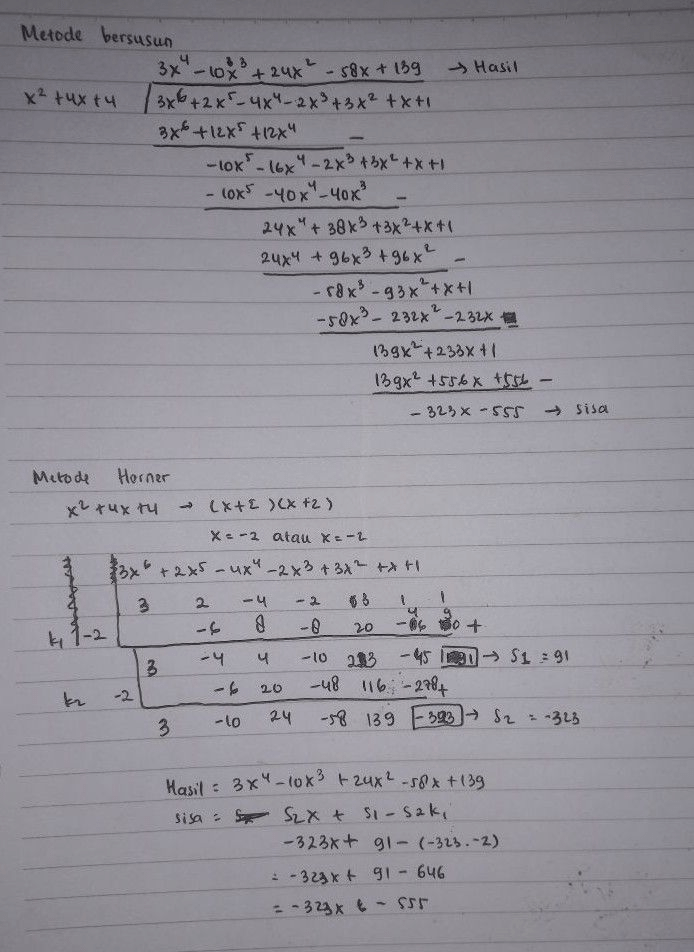 Metode bersusun
3x⁴ - 10x³ + 24x² - 58x + 139 → Hasil
x² + 4x + 4 √ 3x⁶ + 2x⁵ - 4x⁴ - 2x³ + 3x² + x + 1
3x⁶ + 12x⁵ + 12x⁴ -
-10x⁵ - 16x⁴ - 2x³ + 3x² + x + 1
-10x⁵ - 40x⁴ - 40x³ -
24x⁴ + 38x³ + 3x² + x + 1
24x⁴ + 96x³ + 96x² -
-58x³ - 93x² + x + 1
-58x³ - 232x² - 232x -
139x² + 233x + 1
139x² + 556x + 556 -
-323x - 555 → sisa
Metode Horner
x² + 4x + 4 → (x+2)(x+2)
x = -2 atau x = -2
3x⁶ + 2x⁵ - 4x⁴ - 2x³ + 3x² + x + 1
3 2 -4 -2 3 1 1
k₁ -2 -6 8 -8 20 -46 90 +
3 -4 4 -10 23 -45 91 → S1 = 91
k₂ -2 -6 20 -48 116 -278 +
3 -10 24 -58 139 -323 → S₂ = -323
Hasil = 3x⁴ - 10x³ + 24x² - 58x + 139
sisa = S₂x + S₁ - S₂k₁
-323x + 91 - (-323 . -2)
= -323x + 91 - 646
= -323x - 555